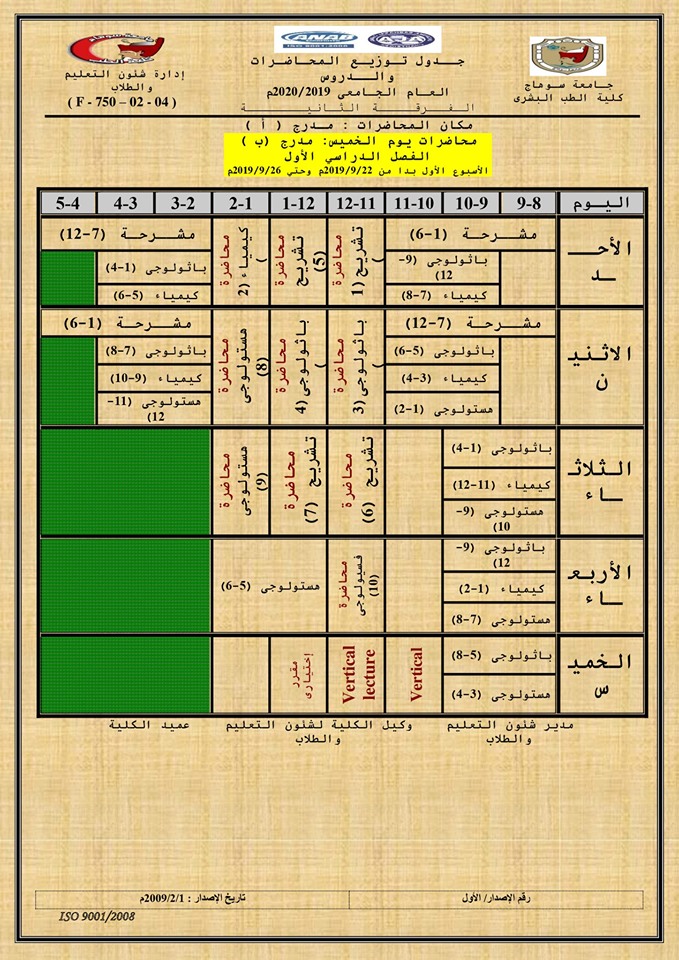 جامعة سوهاج
كلية الطب البشرى
جدول توزيع المحاضرات
والدروس
العام الجامعى 2020/2019م
الفرقة الثانية
إدارة شئون التعليم
والطلاب
( F - 750 – 02 - 04 )
AMAD
ISO 9001/2008
مكان المحاضرات : مدرج ( أ )
محاضرات يوم الخميس: مدرج (ب )
الفصل الدراسي الأول
الأسبوع الأول بدا من 2019/9/22م وحتي 2019/9/26م
اليوم 9-8 10-9 11-10 12-11 1-12 2-1 3-2 4-3 5-4
الأحــــد
مشرحة (1-6)
باثولوجى (9-12)
كيمياء (7-8)
محاضرة تشريح (1)
محاضرة تشريح (5)
محاضرة كيمياء (2)
مشرحة (7-12)
باثولوجى (1-4)
كيمياء (5-6)
الاثنين
مشرحة (7-12)
باثولوجى (5-6)
كيمياء (3-4)
هستولوجى (1-2)
محاضرة باثولوجى (3)
محاضرة باثولوجى (4)
محاضرة هستولوجى (8)
مشرحة (1-6)
باثولوجى (7-8)
كيمياء (9-10)
هستولوجى (11-12)
الثلاثـــاء
باثولوجى (1-4)
كيمياء (11-12)
هستولوجى (9-10)
محاضرة تشريح (6)
محاضرة تشريح (7)
محاضرة هستولوجى (9)
الأربعـــاء
باثولوجى (9-12)
كيمياء (1-2)
هستولوجى (7-8)
محاضرة فسيولوجى (10)
هستولوجى (5-6)
الخميس
باثولوجى (5-8)
هستولوجى (3-4)
Vertical
Vertical lecture
مقرر إختيارى
مدير شئون التعليم والطلاب
وكيل الكلية لشئون التعليم والطلاب
عميد الكلية
رقم الإصدار/ الأول
تاريخ الإصدار : 2009/2/1م
ISO 9001/2008